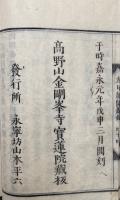 于時嘉永元年戊申三月開刻
高野山金剛峯寺寶蓮院藏板
發行所 永寧坊山本平六